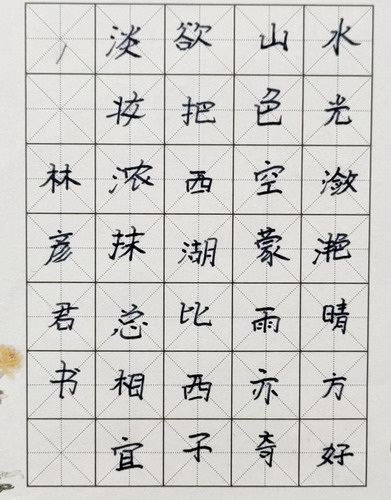 水光潋滟晴方好
山色空蒙雨亦奇
欲把西湖比西子
淡妆浓抹总相宜
林彦君书